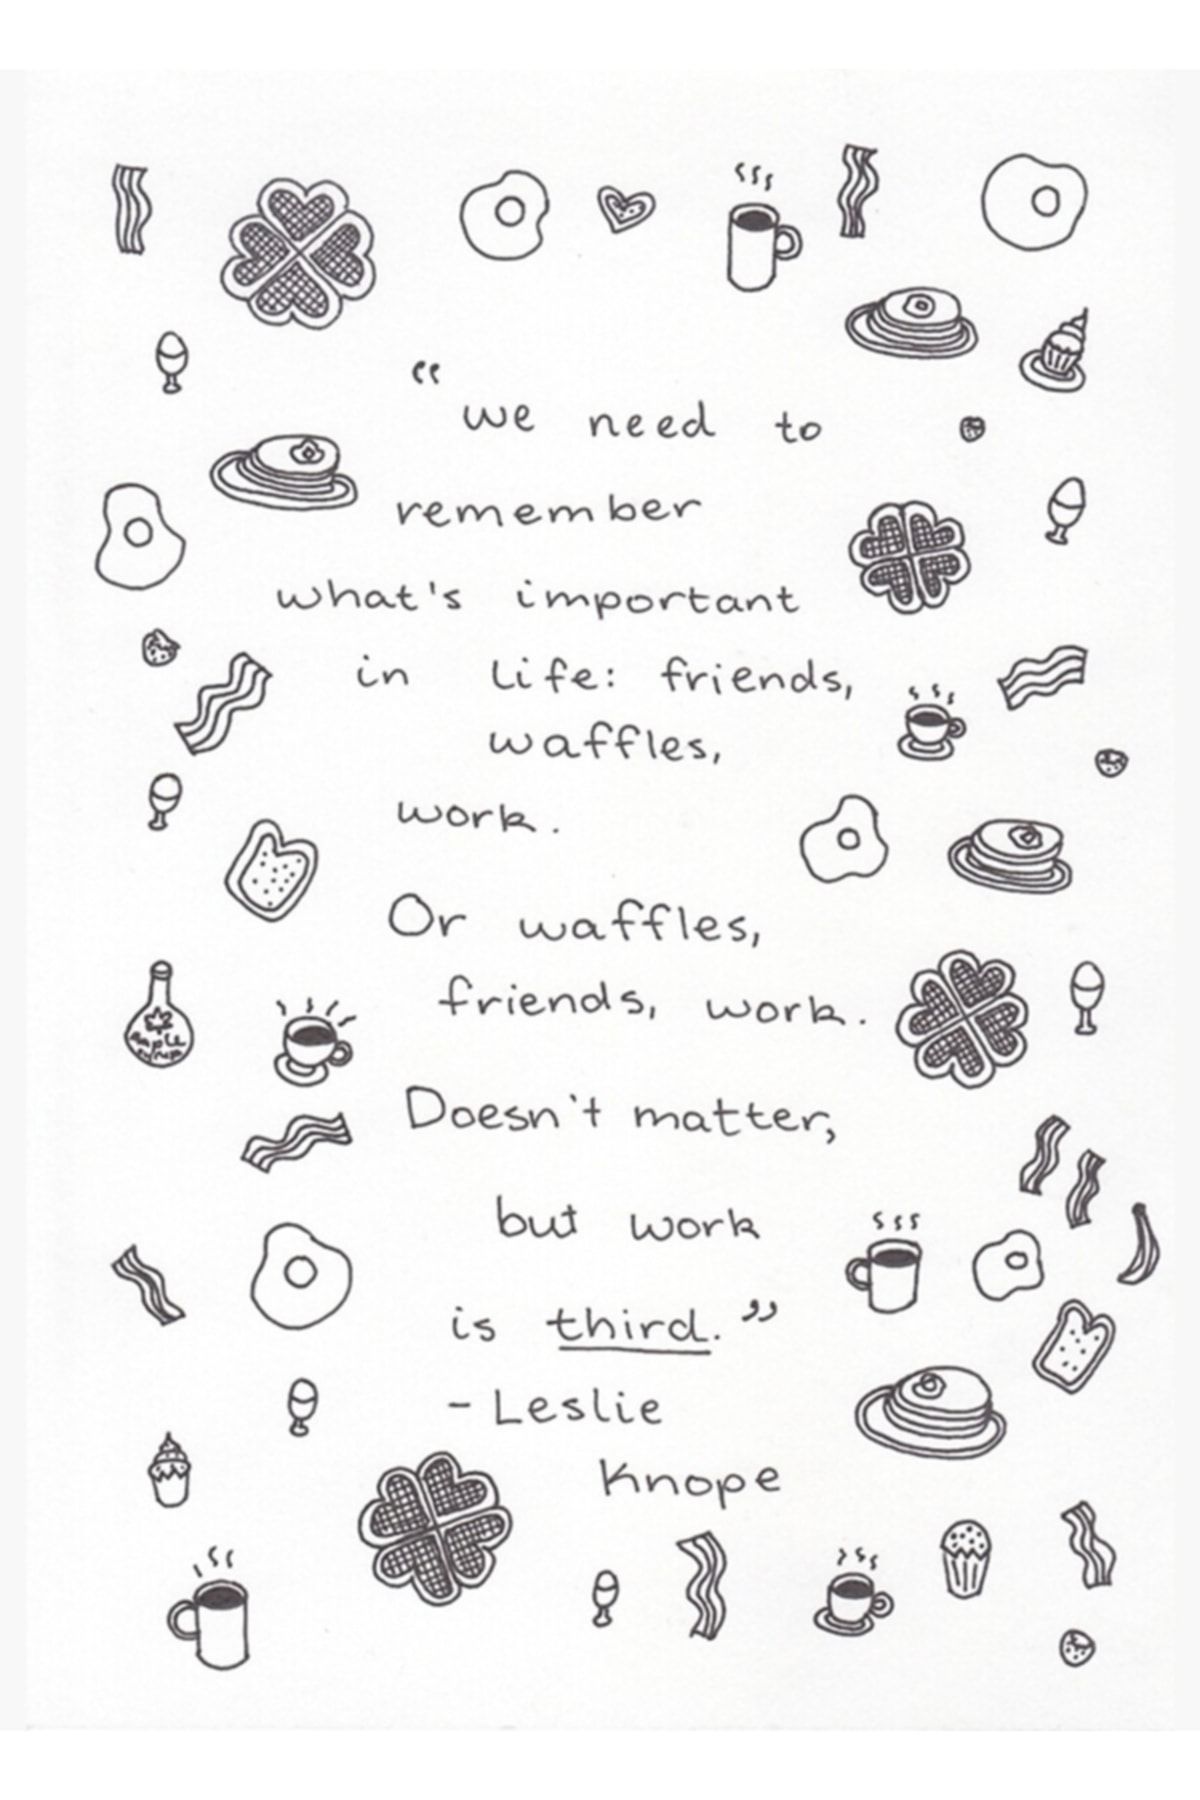 "we need to
remember
what's important
in Life: friends,
waffles,
work.
Or waffles,
friends, work.
Doesn't matter,
but work
is third."
- Leslie
Knope
maple
syrup